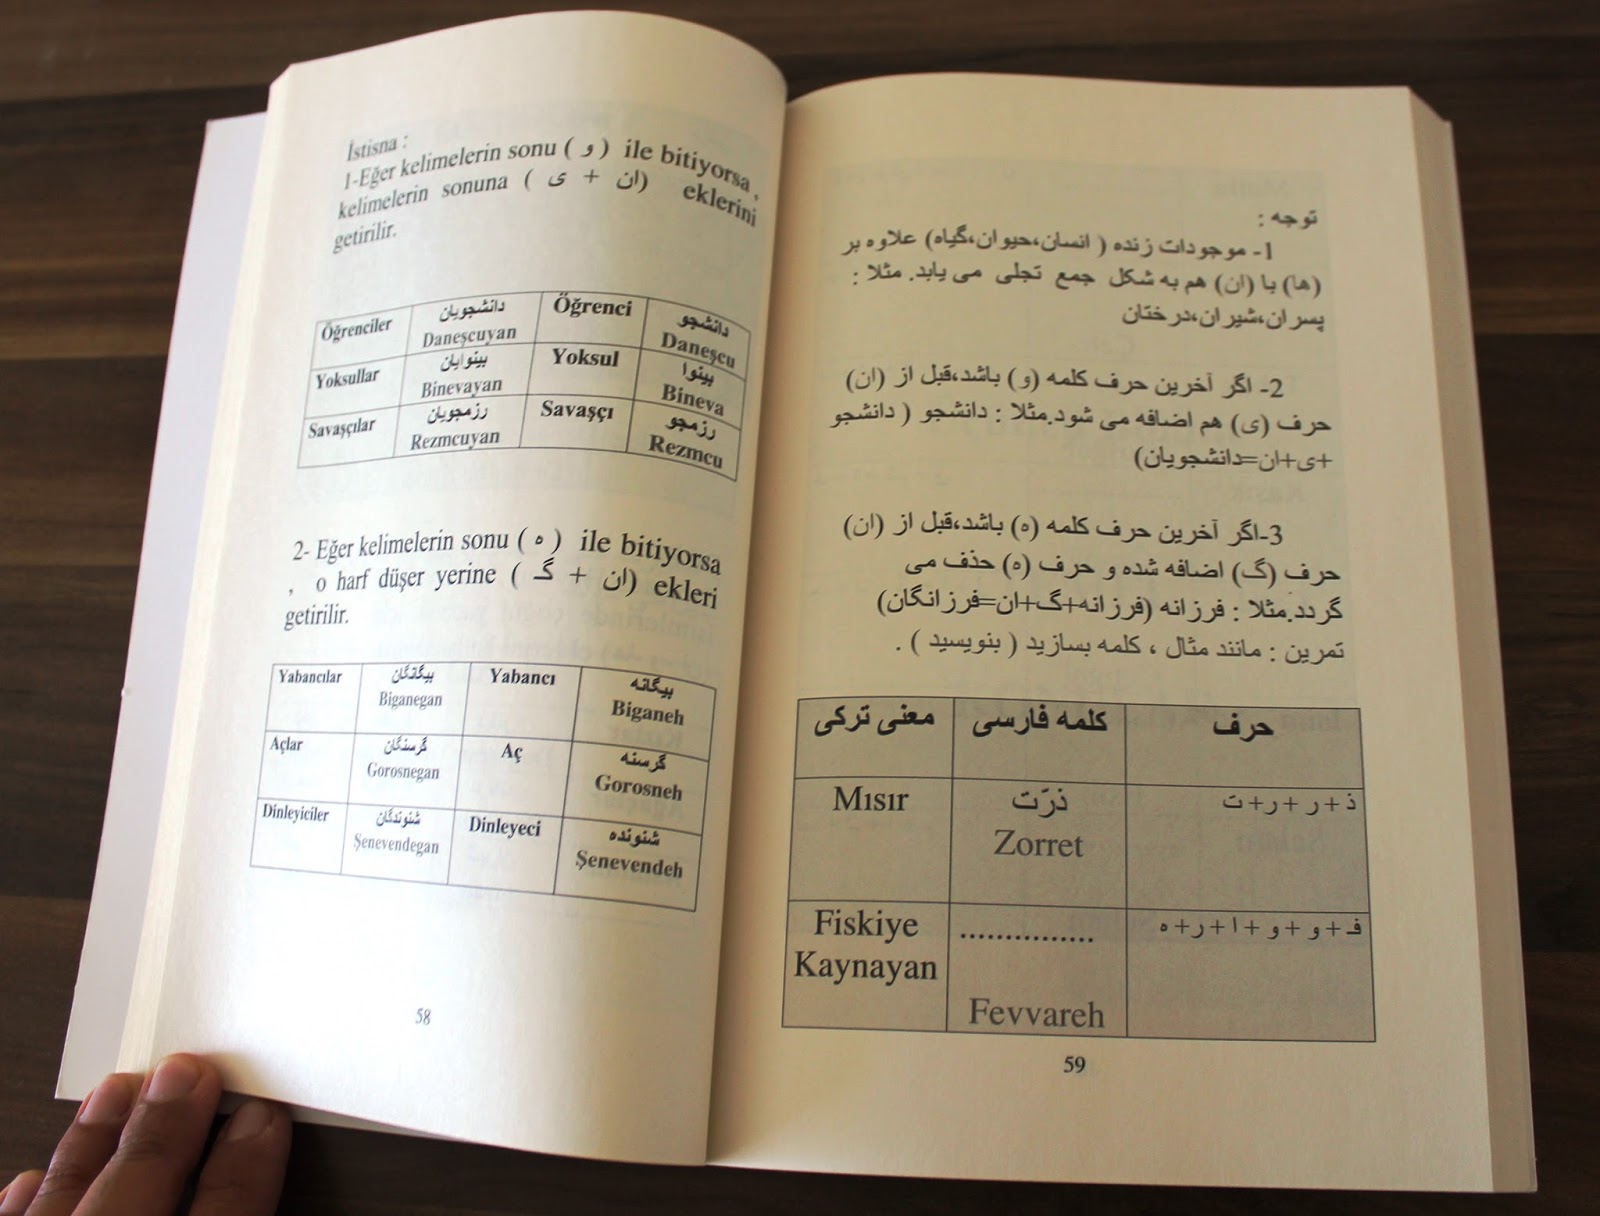 İstisna :
1-Eğer kelimelerin sonu ( و ) ile bitiyorsa ,
kelimelerin sonuna ( ان + ی ) eklerini
getirilir.
Öğrenciler دانشجویان Öğrenci دانشجو
Daneşcuyan Daneşcu
Yoksullar بینوایان Yoksul بینوا
Binevayan Bineva
Savaşçılar رزمجویان Savaşçı رزمجو
Rezmcuyan Rezmcu
2- Eğer kelimelerin sonu ( ه ) ile bitiyorsa
, o harf düşer yerine ( ان + گـ ) ekleri
getirilir.
Yabancılar بیگانگان Yabancı بیگانه
Biganegan Biganeh
Açlar گرسنگان Aç گرسنه
Gorosnegan Gorosneh
Dinleyiciler شنوندگان Dinleyeci شنونده
Şenevendegan Şenevendeh
58
توجه :
1- موجودات زنده ( انسان،حیوان،گیاه) علاوه بر
(ها) با (ان) هم به شکل جمع تجلی می یابد. مثلا :
پسران،شیران،درختان
2- اگر آخرین حرف کلمه (و) باشد،قبل از (ان)
حرف (ی) هم اضافه می شود.مثلا : دانشجو ( دانشجو
+ی+ان=دانشجویان)
3-اگر آخرین حرف کلمه (ه) باشد،قبل از (ان)
حرف (گ) اضافه شده و حرف (ه) حذف می
گردد.مثلا : فرزانه (فرزانه+گ+ان=فرزانگان)
تمرین : مانند مثال ، کلمه بسازید ( بنویسید ) .
حرف کلمه فارسی معنی ترکی
ذ + ر + ر+ ت ذرّت Mısır
Zorret
فـ + و + و + ا + ر+ ه ............... Fiskiye
Kaynayan
Fevvareh
59